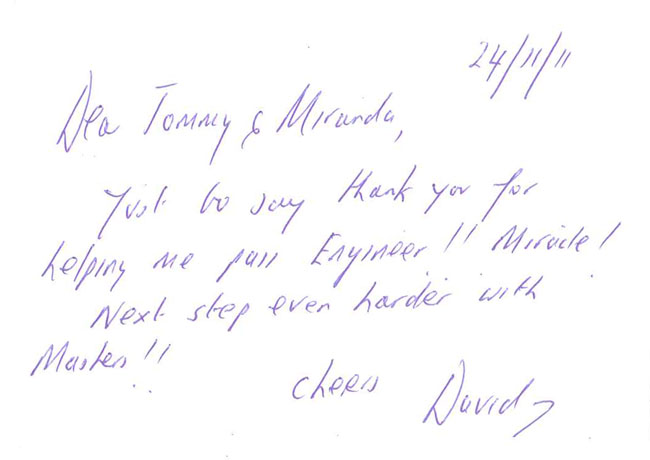 24/11/11
Dea Tommy & Miranda,
Just to say thank you for
helping me pass Engineer!! Miracle!
Next step even harder with
Masters!!
cheers David